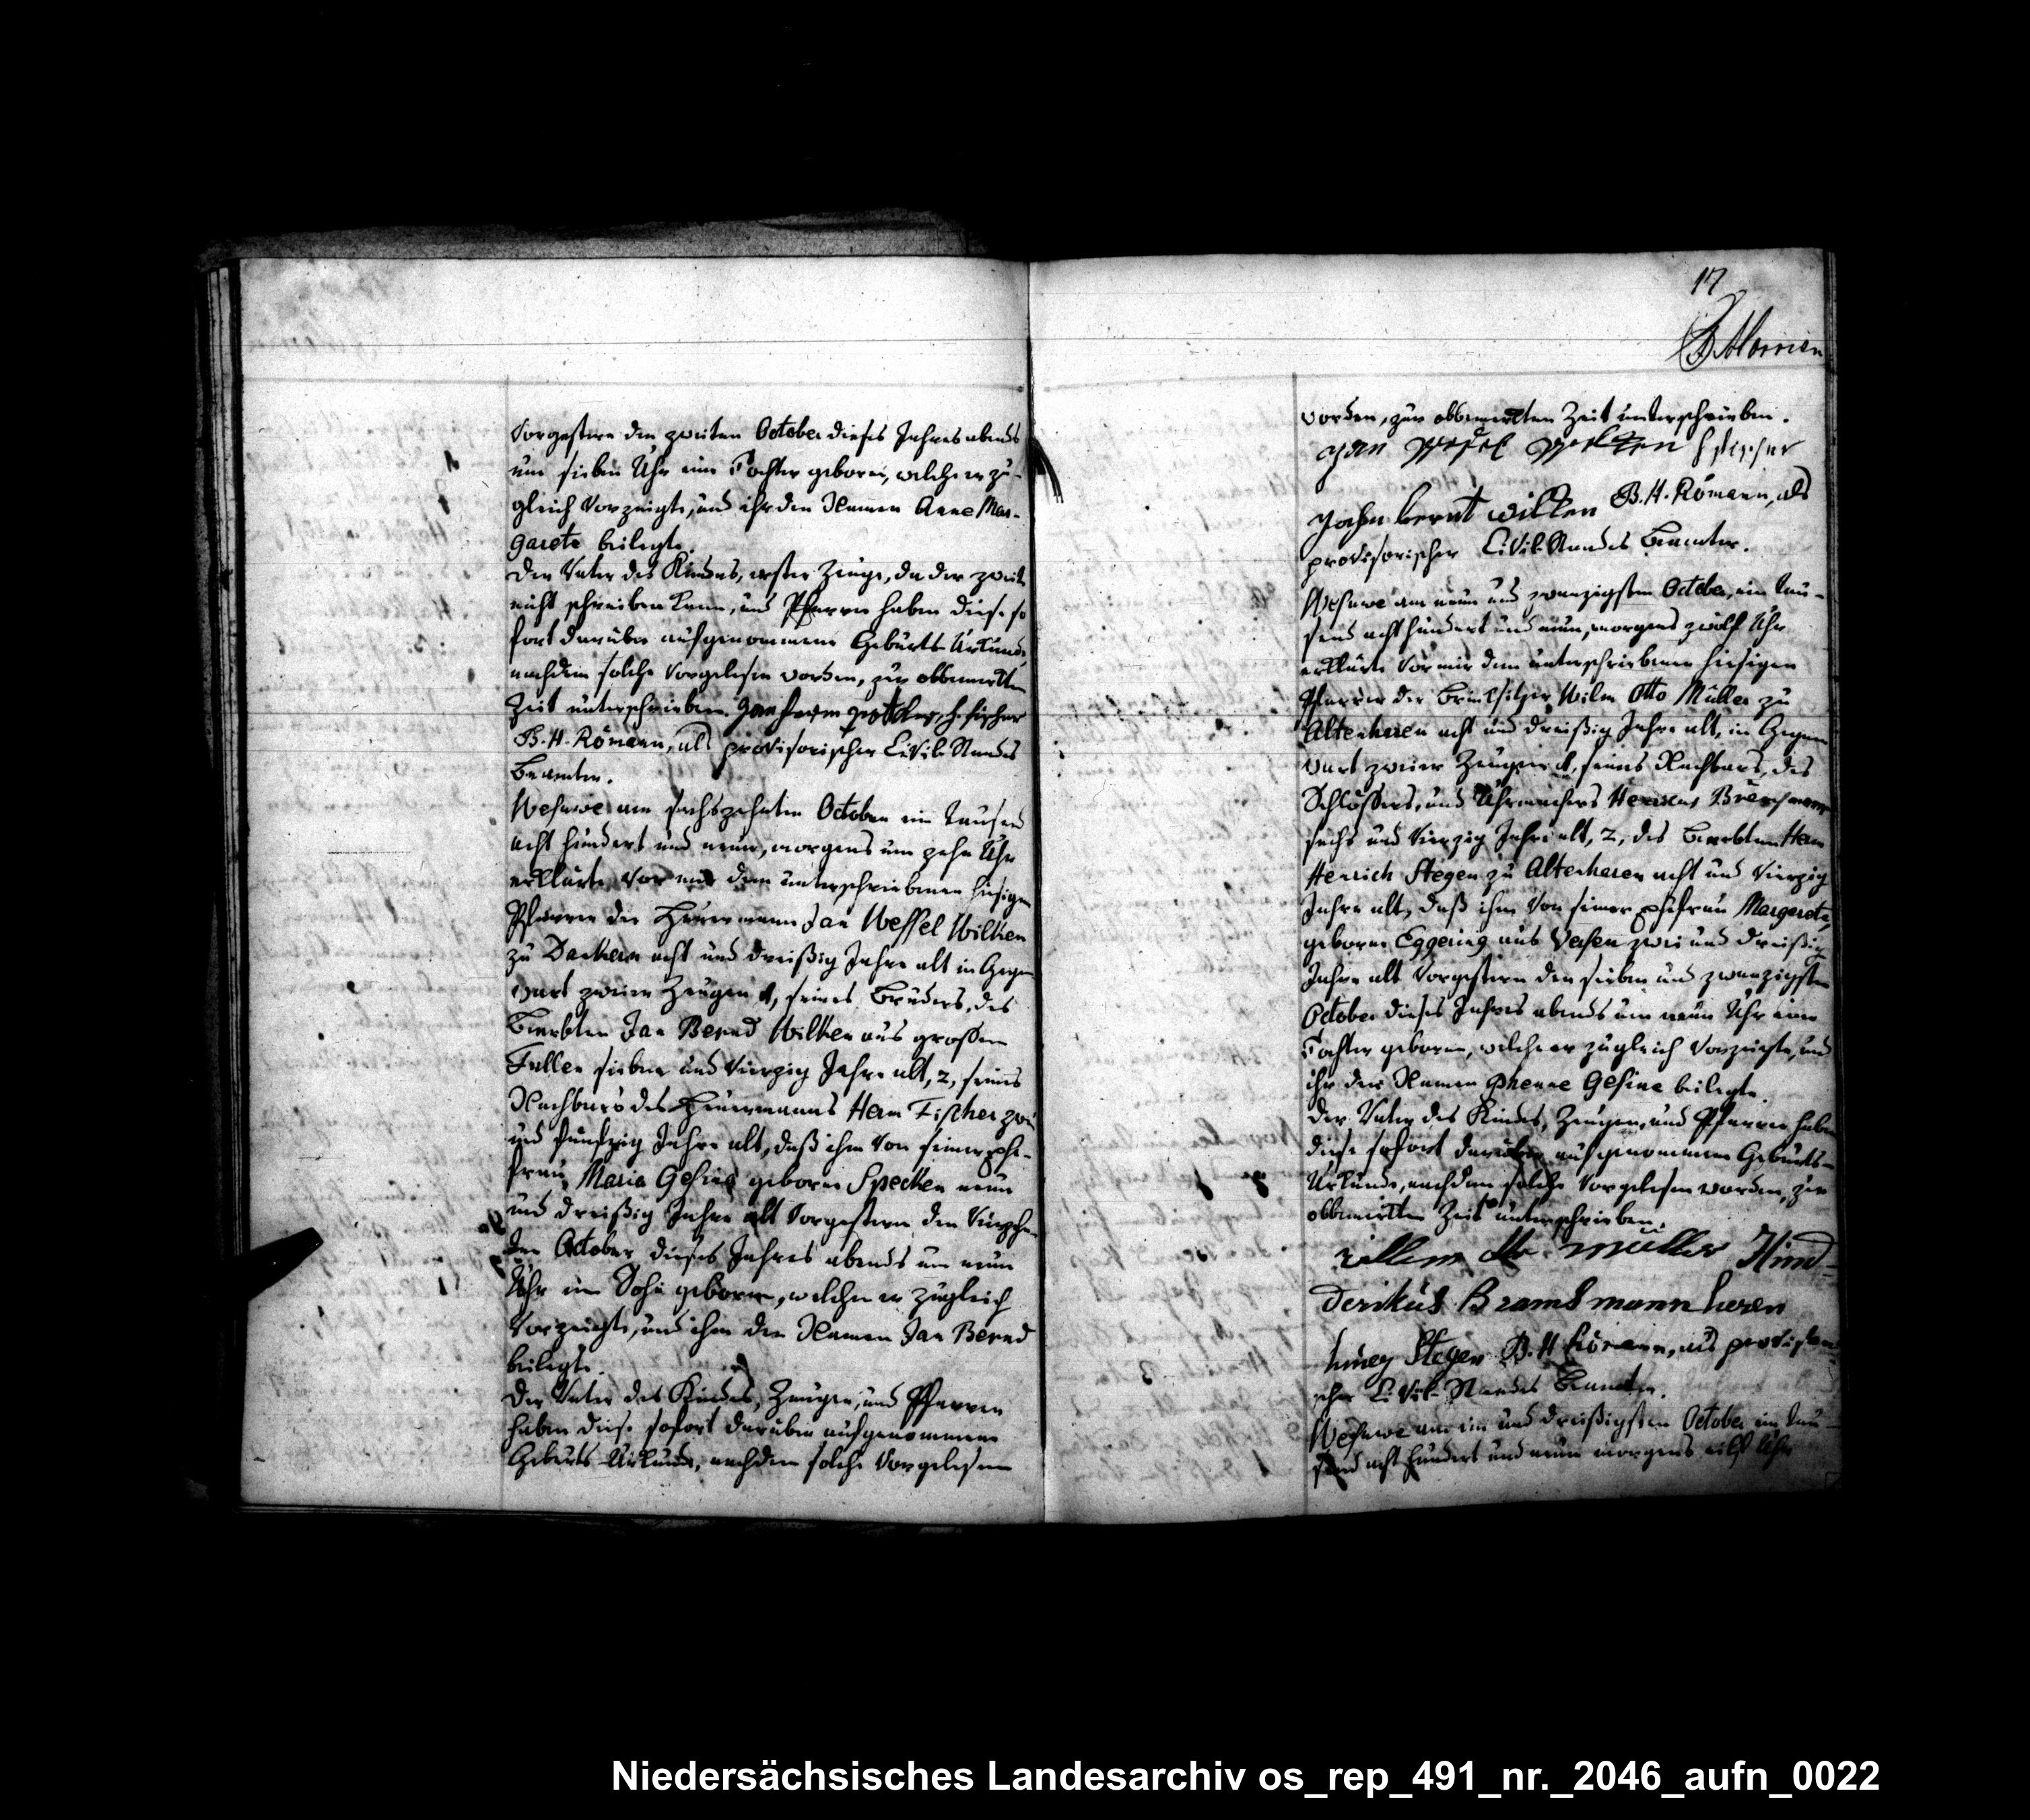 vorgestern den zweiten October dieses Jahres abends
um sieben Uhr eine Tochter geboren, welche er zu-
gleich vorzeigte, und ihr den Namen Anne Mar-
garete beilegte.
Der Vater des Kindes, erster Zeuge, da der zweite
nicht schreiben kann, und Pfarrer haben diese so
fort darüber aufgenommene Geburts-Urkunde,
nachdem solche vorgelesen worden, zur obbemerkten
Zeit unterschrieben. Jan herm h. fischer
B. H. Römann, als provisorischer Civil-Standes
Beamter.
Wesuwe am sechszehnten October ein tausend
acht hundert und neun, morgens um zehn Uhr
erklärte vor mir dem unterschriebenen hiesigen
Pfarrer der Heuermann Jan Wessel Wilken
zu Dankern acht und dreißig Jahre alt in Gegen
wart zweier Zeugen 1, seines Bruders, des
Beerbten Jan Bernd Wilken aus großen
Fullen sieben und vierzig Jahre alt, 2, seines
Nachbars des Heuermanns Herm Fischer zwei
und fünfzig Jahre alt, daß ihm von seiner Ehe-
frau, Maria Gesina geborne Specken neun
und dreißig Jahre alt vorgestern den vierzehn-
ten October dieses Jahres abends um neun
Uhr ein Sohn geboren, welchen er zugleich
vorzeigte, und ihm den Namen Jan Bernd
beilegte.
Der Vater des Kindes, Zeugen, und Pfarrer
haben diese sofort darüber aufgenommene
Geburts-Urkunde, nachdem solche vorgelesen
17
worden, zur obbemerkten Zeit unterschrieben.
Jan Wesel Wilken h fischer
Johan bernt willen B. H. Römann, als
provisorischer Civil-Standes Beamter.
Wesuwe am neun und zwanzigsten October, ein tau-
send acht hundert und neun, morgens zwölf Uhr
erklärte vor mir dem unterschriebenen hiesigen
Pfarrer der Brinksitzer Wilm Otto Müller zu
Altenharen acht und dreißig Jahre alt, in Gegen
wart zweier Zeugen 1, seines Nachbars, des
Schlössers, und Uhrmachers Henricus
sechs und vierzig Jahre alt, 2, des Beerbten Herm
Henrich Stegen zu Altenharen acht und vierzig
Jahre alt, daß ihm von seiner Ehefrau Margareta,
geborne Eggering aus Versen zwei und dreißig
Jahre alt vorgestern den sieben und zwanzigsten
October dieses Jahres abends um neun Uhr eine
Tochter geboren, welche er zugleich vorzeigte, und
ihr den Namen Gesina beilegte.
Der Vater des Kindes, Zeugen, und Pfarrer haben
diese sofort darüber aufgenommene Geburts-
Urkunde, nachdem solche vorgelesen worden, zur
obbemerkten Zeit unterschrieben.
willem müller Hind-
derikus Bramsmann heren
hinrg Stegen B. H. Römann, als provisori-
scher Civil-Standes Beamter.
Wesuwe am ein und dreißigsten October ein tau-
send acht hundert und neun morgens eilf Uhr
Niedersächsisches Landesarchiv os_rep_491_nr._2046_aufn_0022